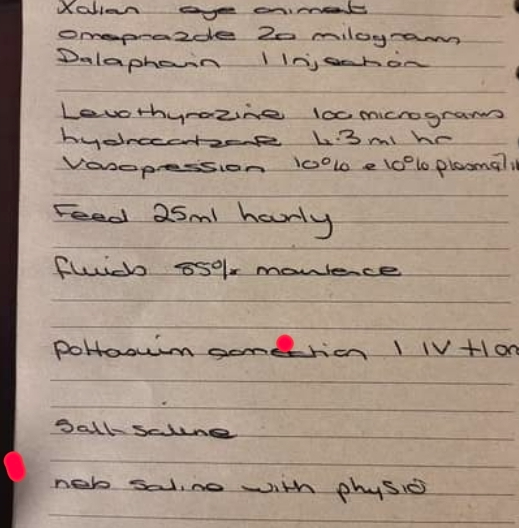 Xalian eye oinment
omeprazole 20 milograms
Dalaphain 1 Injection
Levothyrozine 100 micrograms
hydrocortzone 4.3 ml hr
Vasopression 10% e 10%
Feed 25ml hourly
fluids 85%
pottasuim 1 IV
Salt-saline
neb saline with physio